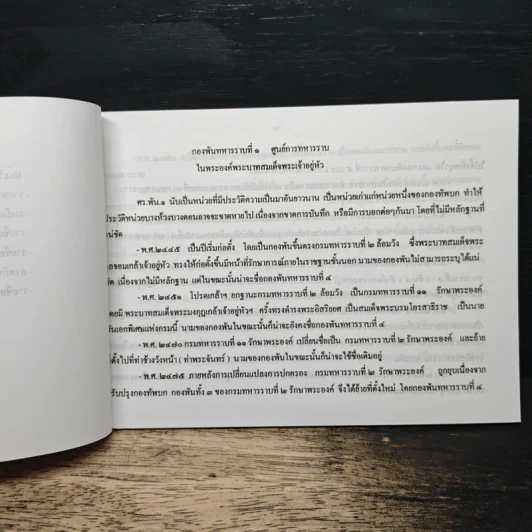 กองพันทหารราบที่ ๑ ศูนย์การทหารราบ
ในพระองค์พระบาทสมเด็จพระเจ้าอยู่หัว
ศร.พัน.๑ นับเป็นหน่วยที่มีประวัติความเป็นมาอันยาวนาน เป็นหน่วยเก่าแก่หน่วยหนึ่งของกองทัพบก ทำให้
ประวัติหน่วยบางห้วงบางตอนอาจจะขาดหายไป เนื่องจากขาดการบันทึก หรือมีการบอกต่อๆกันมา โดยที่ไม่มีหลักฐานที่
น่ชัด
- พ.ศ.๒๔๔๕ เป็นปีเริ่มก่อตั้ง โดยเป็นกองพันขึ้นตรงกรมทหารราบที่ ๒ ล้อมวัง ซึ่งพระบาทสมเด็จพระ
ุลจอมเกล้าเจ้าอยู่หัว ทรงให้ก่อตั้งขึ้นมีหน้าที่รักษาการณ์ภายในราชฐานชั้นนอก นามของกองพันไม่สามารถระบุได้แน่
ชัด เนื่องจากไม่มีหลักฐาน แต่ในขณะนั้นน่าจะชื่อกองพันทหารราบที่ ๔
- พ.ศ.๒๔๕๑ โปรดเกล้าฯ ยกฐานะกรมทหารราบที่ ๒ ล้อมวัง เป็นกรมทหารราบที่ ๑๑ รักษาพระองค์
โดยมี พระบาทสมเด็จพระมงกุฎเกล้าเจ้าอยู่หัว ครั้งทรงดำรงพระอิสริยยศ เป็นสมเด็จพระบรมโอรสาธิราช เป็นนาย
พันเอกพิเศษแห่งกรมนี้ นามของกองพันในขณะนั้นก็น่าจะยังคงชื่อกองพันทหารราบที่ ๔
- พ.ศ.๒๔๗๐ กรมทหารราบที่ ๑๑ รักษาพระองค์ เปลี่ยนชื่อเป็น กรมทหารราบที่ ๒ รักษาพระองค์ และย้าย
ี่ตั้งไปที่ท่าช้างวังหน้า ( ท่าพระจันทร์ ) นามของกองพันในขณะนั้นก็น่าจะใช้ชื่อเดิมอยู่
- พ.ศ. ๒๔๗๕ ภายหลังการเปลี่ยนแปลงการปกครอง กรมทหารราบที่ ๒ รักษาพระองค์ ถูกยุบเนื่องจาก
รับปรุงกองทัพบก กองพันทั้ง ๓ ของกรมทหารราบที่ ๒ รักษาพระองค์ จึงได้ย้ายที่ตั้งใหม่ โดยกองพันทหารราบที่ ๔